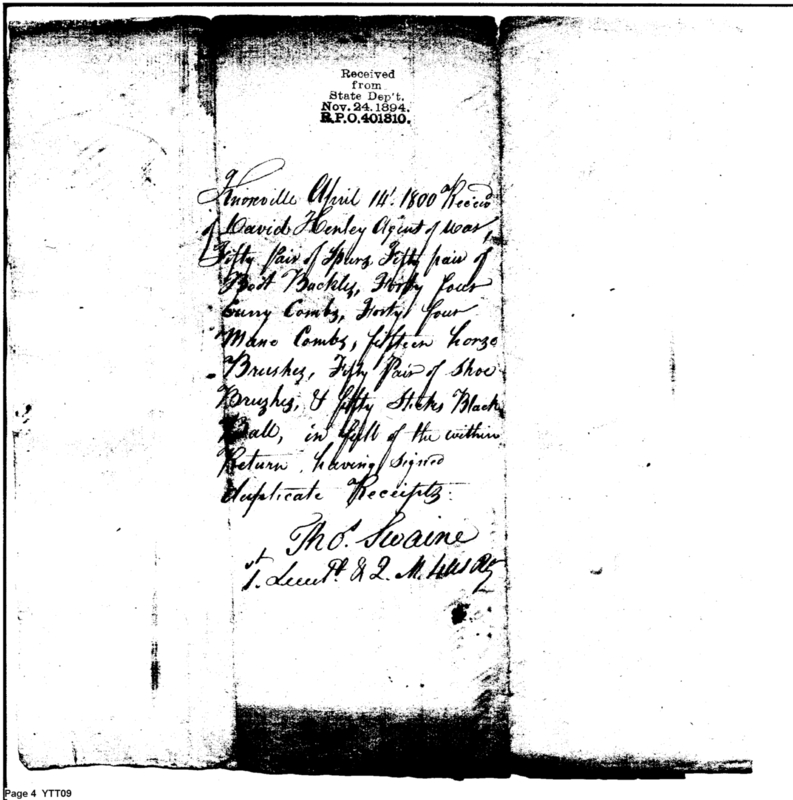 Received
from
State Dep't.
Nov. 24. 1894.
R.P.O. 401810.
Knoxville April 14th. 1800 Receiv'd
of David Henley Agent of War,
Fifty pair of Spurs, Fifty pair of
Boot Buckles, Forty four
Curry Combs, Forty four
Mane Combs, fifteen horse
Brushes, Fifty Pair of Shoe
Brushes, & fifty Sticks Black
Ball, in full of the within
Return, having signed
duplicate Receipts.
Thos. Swaine
1st. Lieut & Q. M. 4 US Rg
Page 4 YTT09